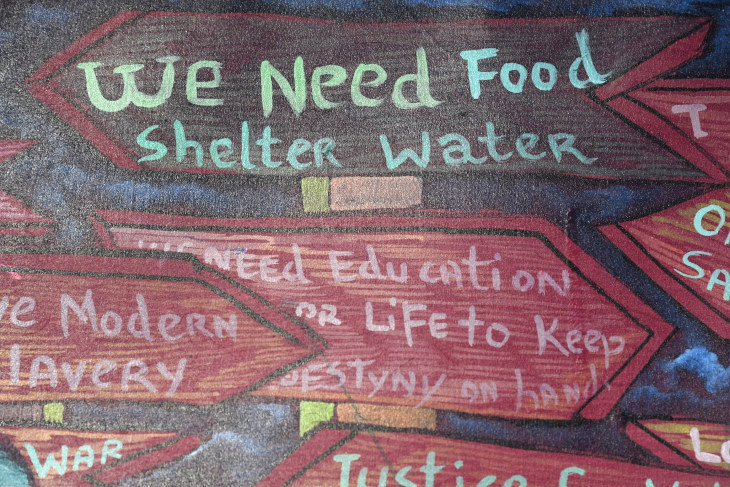 We Need Food
Shelter Water
T
WE NEED Education
OR LiFE to Keep
DESTYNY on hand
ve Modern
lavery
SA
WAR
Justice